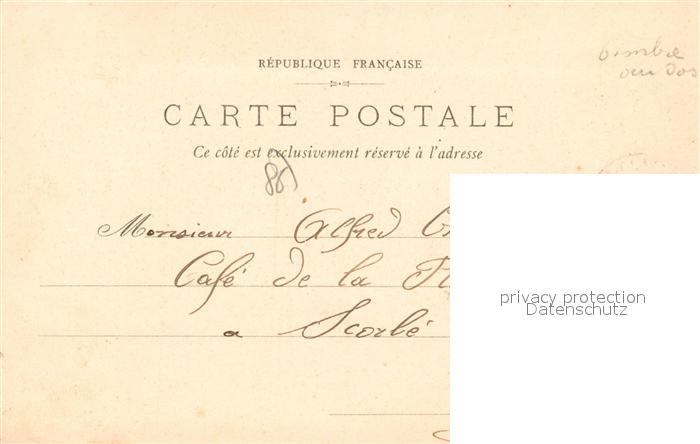 timbre
au dos
RÉPUBLIQUE FRANÇAISE
CARTE POSTALE
Ce côté est exclusivement réservé à l'adresse
86)
Monsieur Alfred
Café de la
a Scorbé
privacy protection
Datenschutz